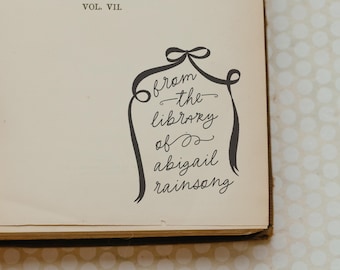 VOL. VII.
from
the
library
of
abigail
rainsong